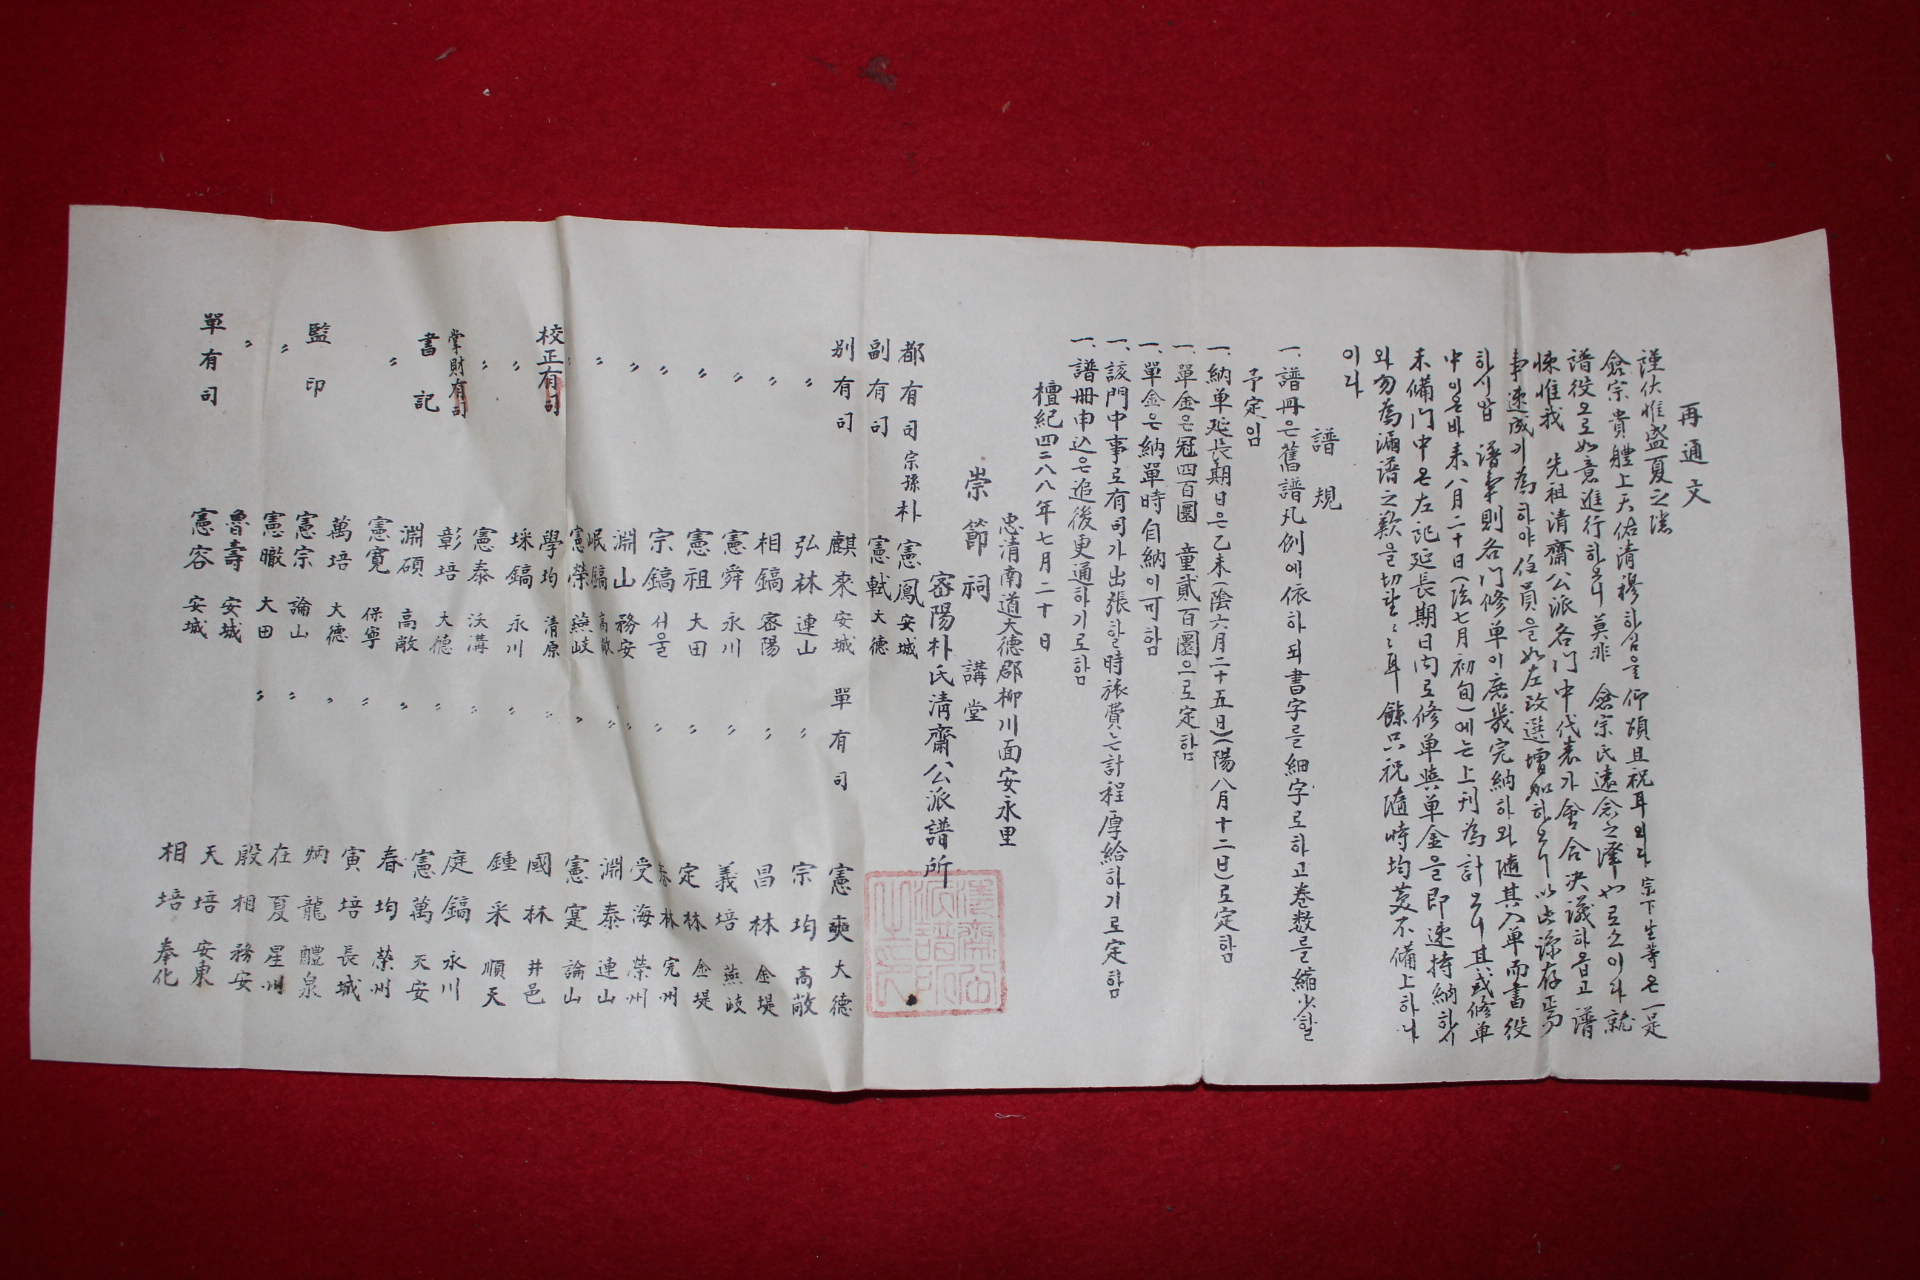 再通文
謹伏惟盛夏之際
僉宗貴體上天佑清穆하심을仰頌且祝耳외다宗下生等은一是
譜役으로如意進行하오니莫非 僉宗氏遠念之澤也로소이다就
悚惟我 先祖清齋公派各門中代表가會合決議하옵고譜
事速成키為하야任員을如左改選增加하오니以此諒存焉
하시압 譜事則各門修单이庶幾完納하와隨其入单而書役
中이온바来八月二十日(陰七月初旬)에는上刊為計오니其或修单
未備門中은左記延長期日內로修单與单金을即速持納하시
와勿為漏譜之歎을切望之耳 餘只祝隨時均荽不備上하나
이다
譜規
一、譜冊은舊譜凡例에依하되書字를細字로하고卷数를縮少할
予定임
一、納单延長期日은乙未(陰六月二十五日)(陽八月十二日)로定함
一、單金은冠四百圜 童貳百圜으로定함
一、單金은納單時自納이可함
一、該門中事로有司가出張할時旅費는計程厚給하기로定함
一、譜冊申込은追後更通하기로함
檀紀四二八八年七月二十日
忠清南道大德郡柳川面安永里
崇節祠講堂
密陽朴氏清齋公派譜所
都有司 宗孫 朴憲鳳 安城
副有司 憲軾 大德
別有司 麒來 安城 單有司 憲奭 大德
〃 弘林 連山 〃 宗均 高敞
〃 相鎬 密陽 〃 昌林 金堤
〃 憲舜 永川 〃 義培 燕岐
〃 憲祖 大田 〃 定林 金堤
〃 宗鎬 서울 〃 泰林 完州
〃 淵山 務安 〃 受海 榮州
〃 岷鎬 高敞 〃 淵泰 連山
〃 憲榮 燕岐 〃 憲寔 論山
校正有司 學均 清原 〃 國林 井邑
〃 埰鎬 永川 〃 鍾采 順天
〃 憲泰 沃溝 〃 庭鎬 永川
掌財有司 彰培 大德 〃 憲萬 天安
書記 淵碩 高敞 〃 春均 榮州
〃 憲寬 保寧 〃 寅培 長城
〃 萬培 大德 〃 炳龍 醴泉
監印 憲宗 論山 〃 在夏 星州
〃 憲暾 大田 〃 殷相 務安
〃 魯壽 安城 天培 安東
單有司 憲容 安城 相培 奉化